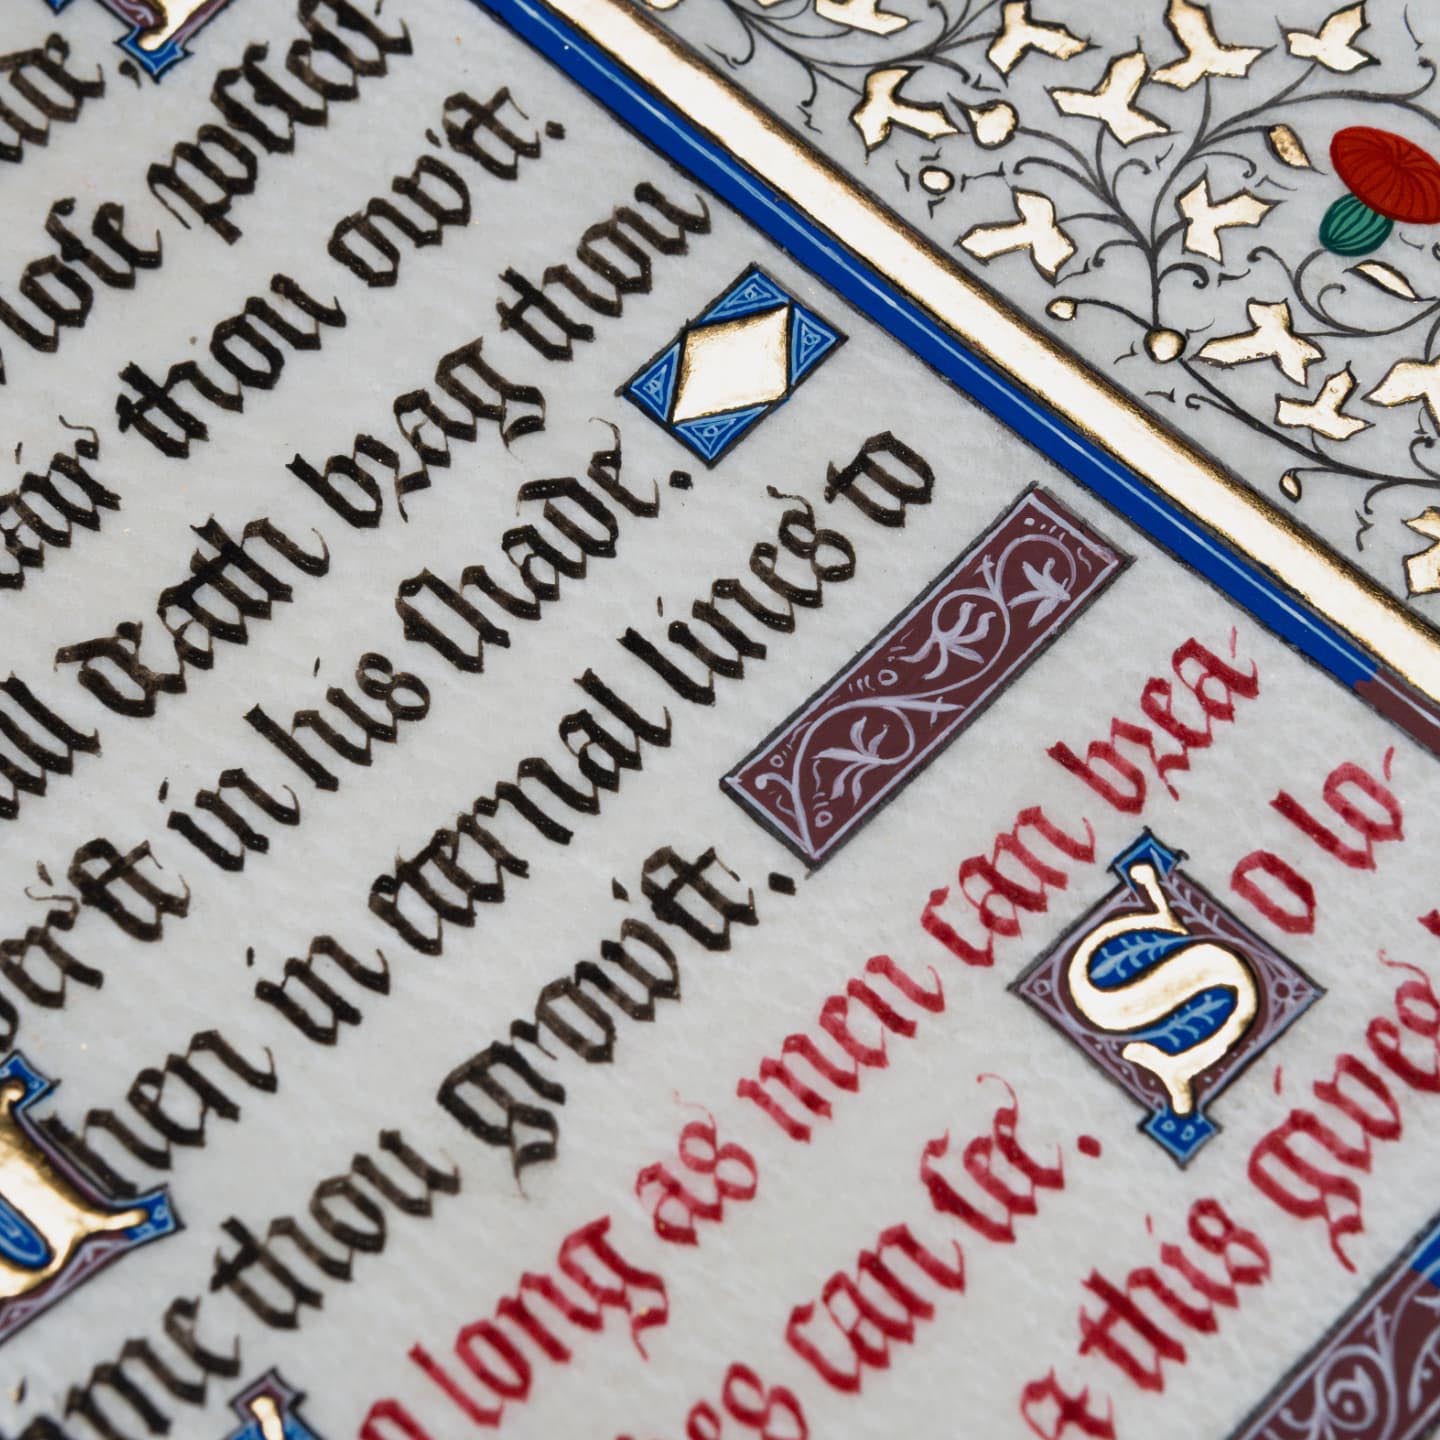 loſe poſſeſſ
thou ow'st.
all death brag thou
in his ſhade.
hen in eternal lines to
me thou grow'st.
long as men can brea-
can ſee. So lo-
this gives